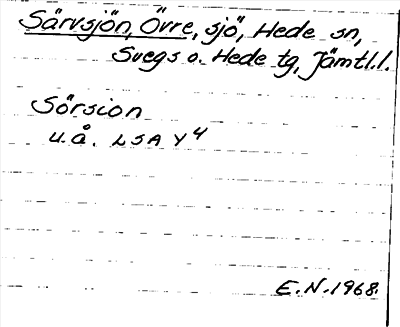 Särvsjön, Övre, sjö, Hede sn,
Svegs o. Hede tg, Jämtl.l.
Sörsion
u.å. LSA Y4
E.N.1968.